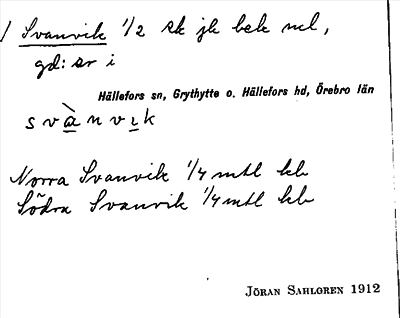 / Svanvik 1/2 sk jk bek ncl,
gd: ar i
Hällefors sn, Grythytte o. Hällefors hd, Örebro län
s v à n v ɩ k
Norra Svanvik 1/4 mtl kb
Södra Svanvik 1/4 mtl kb
JÖRAN SAHLGREN 1912